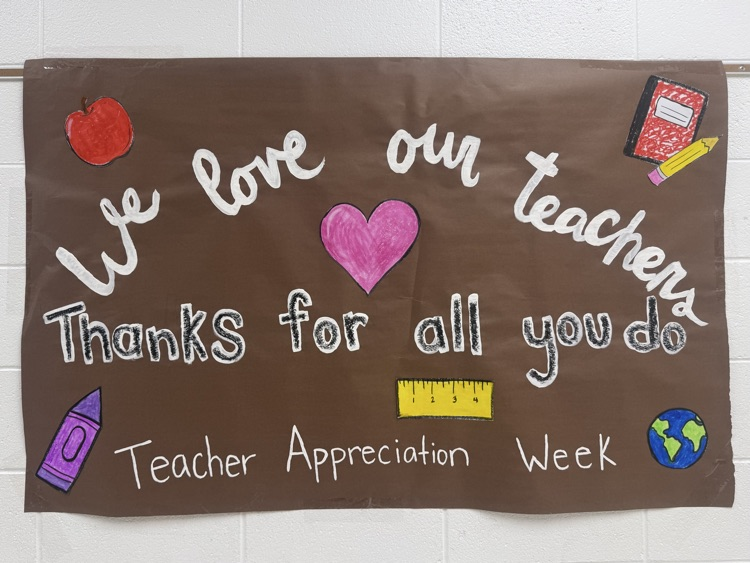 We love our teachers
Thanks for all you do
1 2 3 4
Teacher Appreciation Week